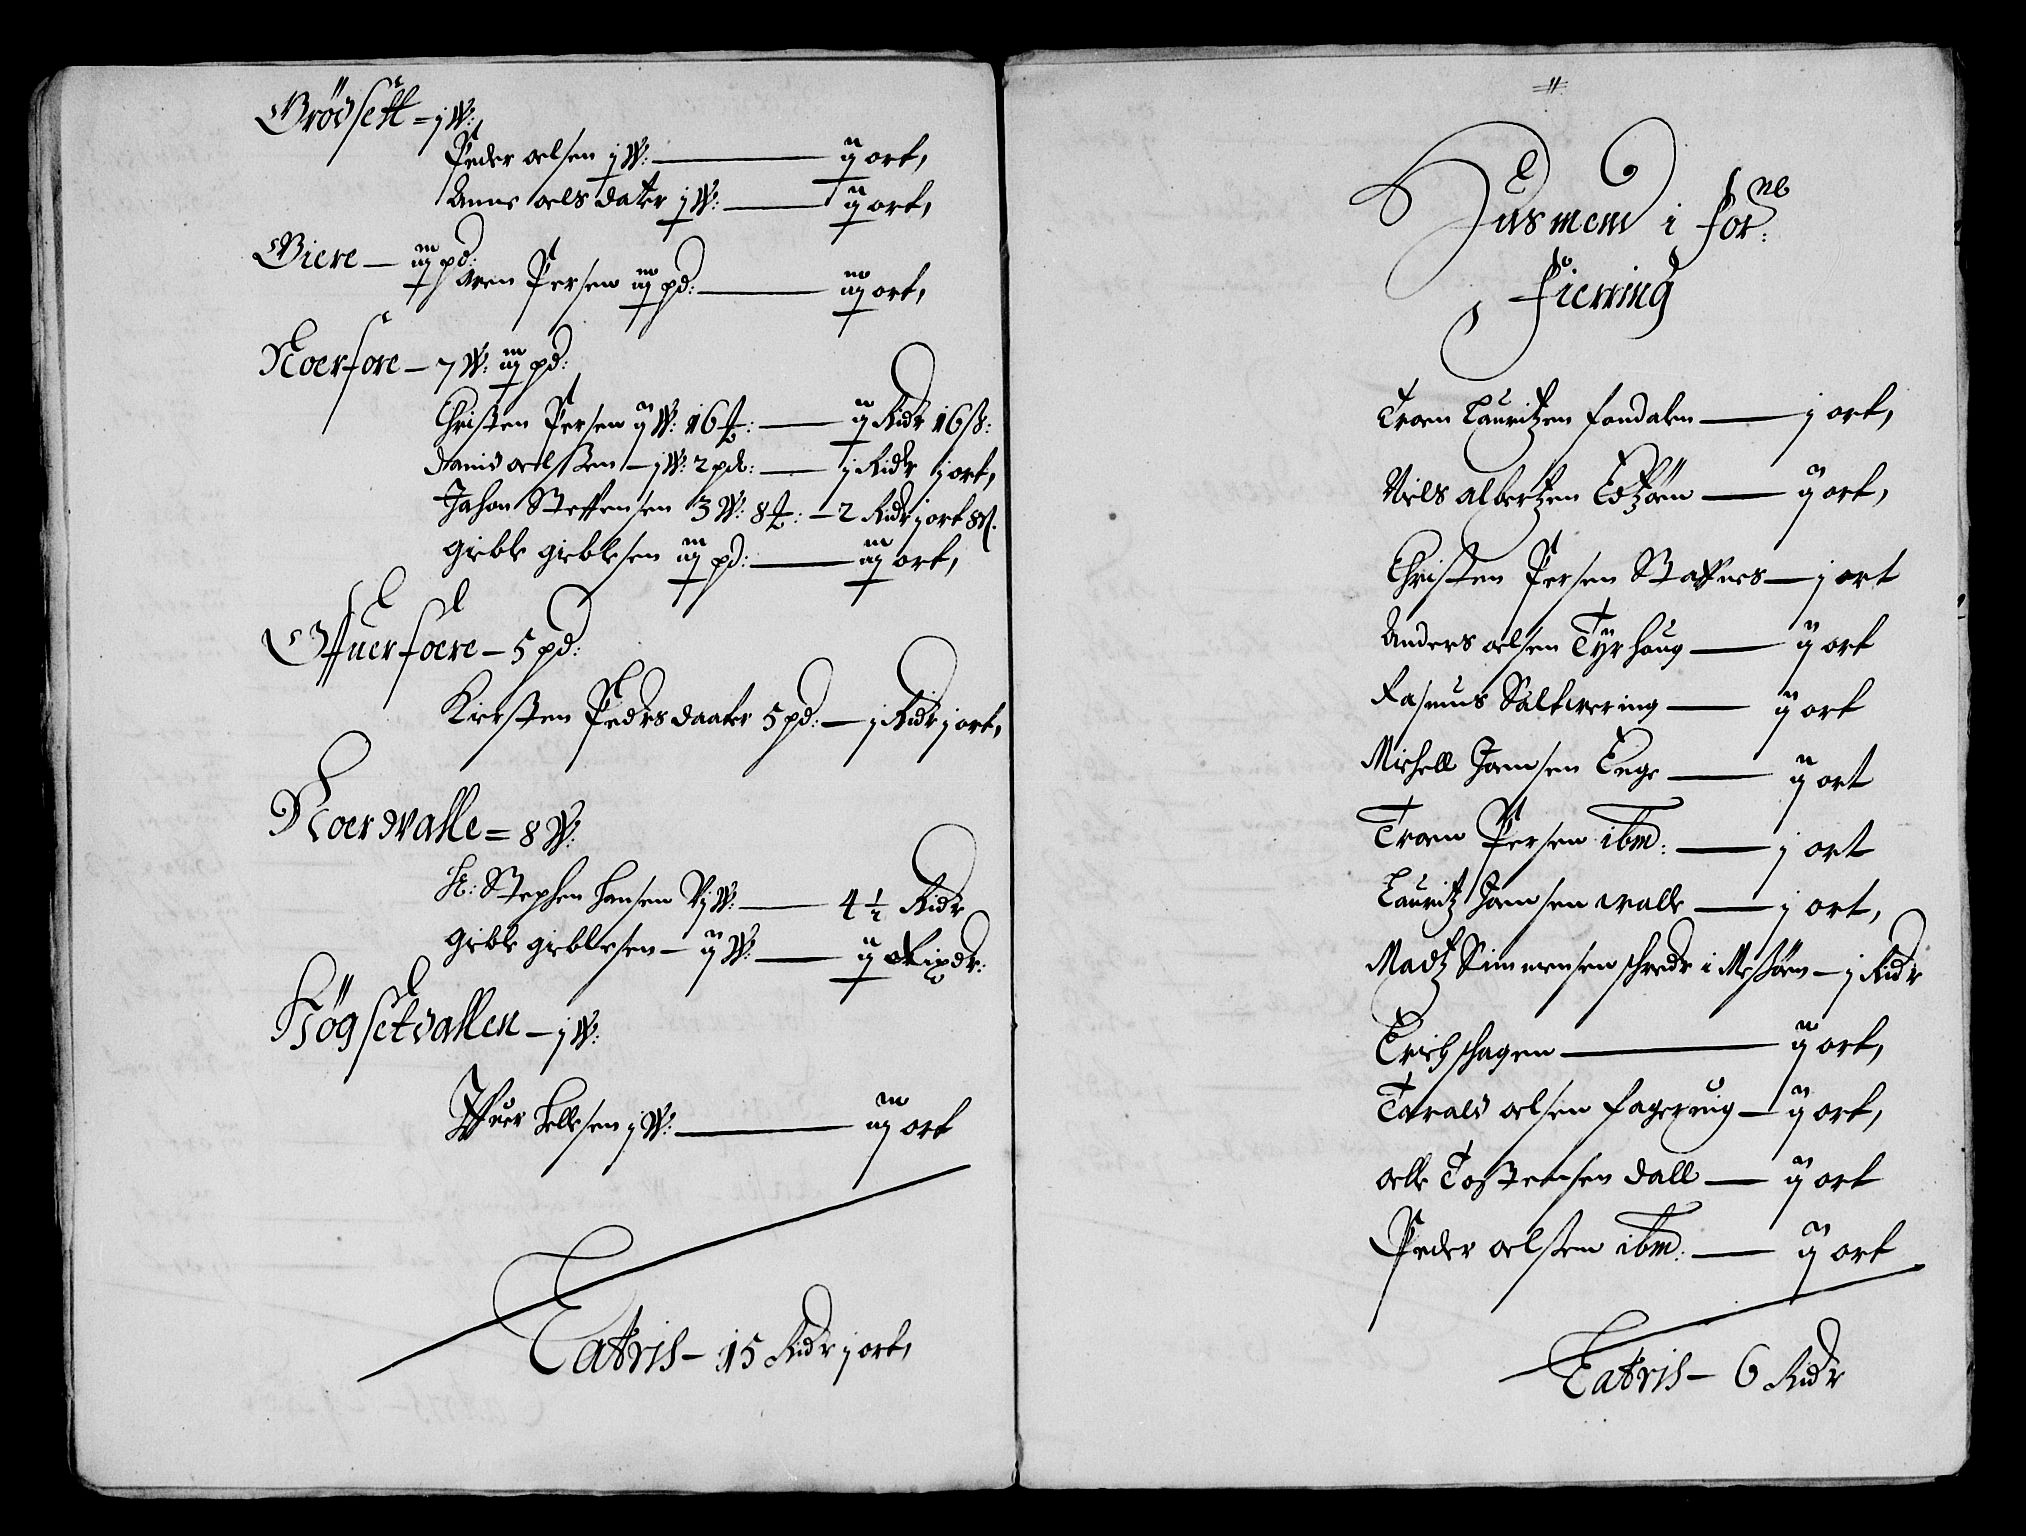 Grödsett = j W:
Peder oelsen j W: — ij ort,
Anne oels dater j W: — ij ort,
Giere — iij pd:
Aren Persen iij pd: — iij ort,
Noerfore — 7 W: iij pd:
Christen Persen ij W: 16 — ij Ridr 16 ß:
David oelssen — j W: 2 pd: — j Ridr j ort,
Jahan Steffensen 3 W: 8 — 2 Ridr j ort 8 ß.
gieble gieblesen iij pd: — iij ort,
Offuerfoere — 5 pd:
Kiersten Pedrsdaater 5 pd: — j Ridr j ort,
Noerdvalle = 8 W:
Hr: Stephen hansen Vj W: — 4 1/2 Ridr
gieble gieblesen — ij W: — ij Rixdr:
Högsetvallen — j W:
Iffuer hellesen j W: — iij ort
Latris — 15 Ridr j ort,
11
Husmend i for:ne
fierring
Troen Lauritzen fondalen — j ort,
Niels albertzen Edtzöen — ij ort,
Christen Persen Staffnes — j ort
Anders oelsen Tyrhoug — ij ort
Rasmus Saltvering — ij ort
Michell Joensen Enge — ij ort
Troen Persen ibm: — j ort
Lauritz Joensen walle — j ort,
Madtz Simmensen schredr i Meßöen — j Ridr
Erich schagen — ij ort,
Tarald oelsen fagerrug — ij ort,
olle Tostensen dall — ij ort
Peder oelssen ibm: — ij ort
Latris — 6 Ridr